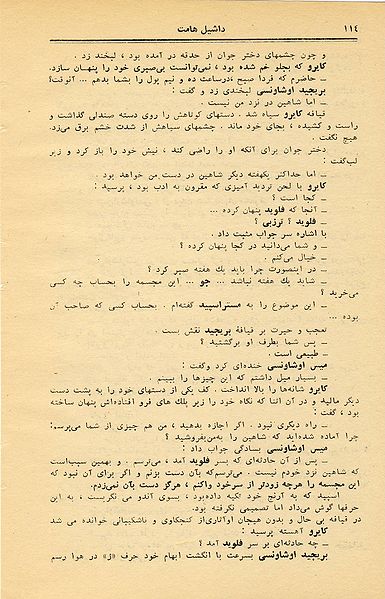 ۱۱۴ داشیل هامت
و چون چشمهای دختر جوان از حدقه در آمده بود ، لبخند زد .
کایرو که بجلو خم شده بود ، نمی‌توانست بی‌صبری خود را پنهان سازد.
ـ حاضرم که فردا صبح ،درساعت ده و نیم پول را بشما بدهم ... آنوقت؟
بریجید اوشاونسی لبخندی زد و گفت :
ـ اما شاهین در نزد من نیست .
قیافه کایرو سیاه شد . دستهای کوتاهش را روی دسته صندلی گذاشت و
راست و کشیده ، بجای خود ماند . چشمهای سیاهش از شدت خشم برق می‌زد.
هیچ نگفت .
دختر جوان برای آنکه او را راضی کند ، نیش خود را باز کرد و زیر
لب‌گفت :
ـ اما حداکثر یکهفته دیگر شاهین در دست من خواهد بود .
کایرو با لحن تردید آمیزی که مقرون به ادب بود ، پرسید :
ـ کجا است ؟
ـ آنجا که فلوید پنهان کرده ...
ـ فلوید ؟ ترزبی ؟
با اشاره سر جواب مثبت داد .
ـ و شما می‌دانید در کجا پنهان کرده ؟
ـ خیال می‌کنم .
ـ در اینصورت چرا باید یك هفته صبر کرد ؟
ـ شاید یك هفته نباشد ... جو ... این مجسمه را بحساب چه کسی
می‌خرید ؟
ـ این موضوع را به مستراسپید گفته‌ام . بحساب کسی که صاحب آن
بوده ...
تعجب و حیرت بر قیافه بریجید نقش بست .
ـ پس شما بطرف او برگشتید ؟
ـ طبیعی است .
میس اوشاونسی خنده‌ای کرد وگفت :
ـ بسیار میل داشتم که این چیزها را ببینم .
کایرو شانه‌ها را بالا انداخت . کف یکی از دستهای خود را به پشت دست
دیگر مالید و در آن اثنا که نگاه خود را زیر پلك های فرو افتاده‌اش پنهان ساخته
بود ، گفت :
ـ راه دیگری نبود . اگر اجازه بدهید ، من هم چیزی از شما می‌پرسم:
چرا آماده شده‌اید که شاهین را به‌من‌بفروشید ؟
میس اوشاونسی بسادگی جواب داد :
ـ پس از آن حادثه‌ای که بسر فلوید آمد ، می‌ترسم . و بهمین سبب‌است
که شاهین نزد خودم نیست . می‌ترسم‌که بآن دست بزنم و اگر برای آن نبود که
این مجسمه را هرچه زودتر از سرخود واکنم ، هرگز دست بآن نمی‌زدم.
اسپید که به آرنج خود تکیه داده‌بود ، بسوی آندو می نگریست ، به این
حرفها گوش می‌داد اما تصمیمی نگرفته بود.
در قیافه بی حال و بدون هیجان اوآثاری‌از کنجکاوی و ناشکیبائی خوانده می شد
کایرو آهسته پرسید :
ـ چه حادثه‌ای بر سر فلوید آمد ؟
بریجید اوشاونسی بسرعت با انگشت ابهام خود حرف «ژ» در هوا رسم